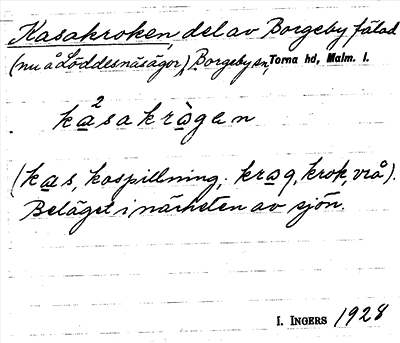 Kasakroken, del av Borgeby fälad
(nu å Löddesnäsägor), Borgeby sn, Torna hd, Malm. l.
ka²sakrògen
(kas, kospillning; krog, krok, vrå).
Beläget i närheten av sjön.
I. INGERS 1928